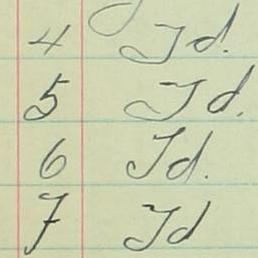 4 Id.
5 Id.
6 Id.
7 Id